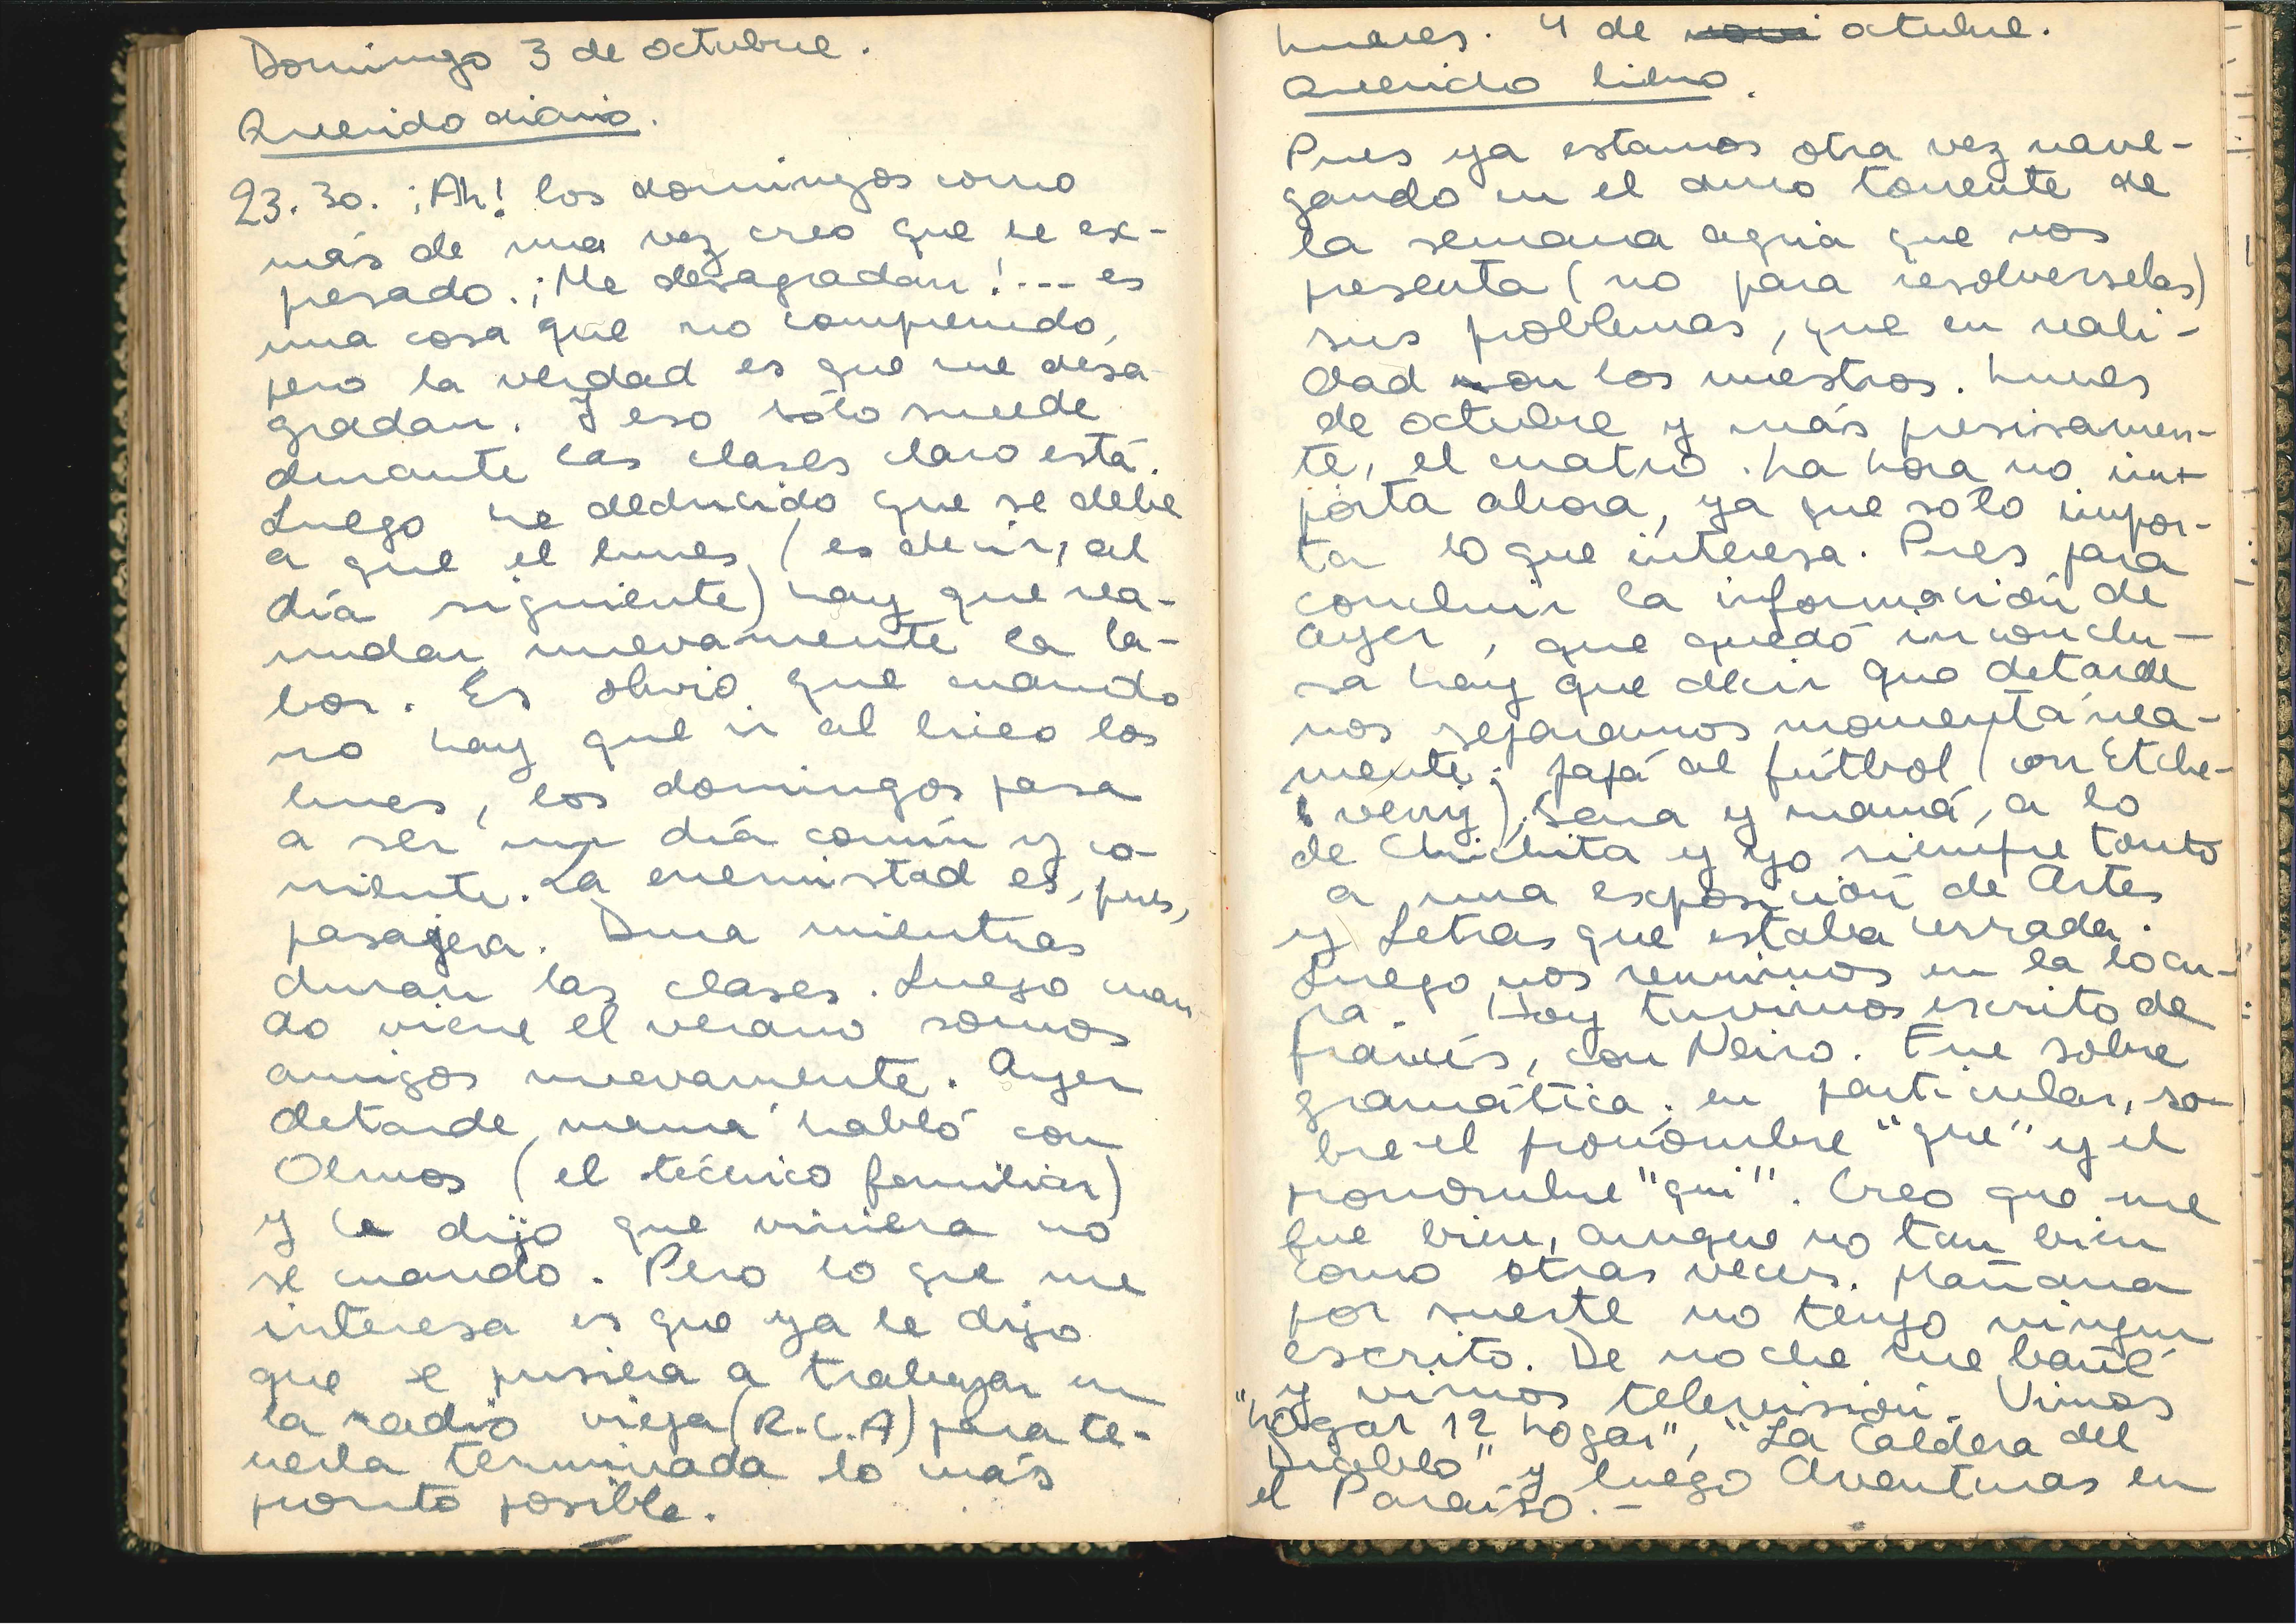 Domingo 3 de octubre.
Querido diario.
23.30. ¡Ah! los domingos como
más de una vez creo que he ex-
presado. ¡Me desagradan!.... es
una cosa que no comprendo,
pero la verdad es que me desa-
gradan. Y eso sólo sucede
durante las clases claro está.
Luego he deducido que se debe
a que el lunes (es decir, al
día siguiente) hay que rea-
nudar nuevamente la la-
bor. Es obvio que cuando
no hay que ir al liceo los
lunes, los domingos pasa
a ser un día común y co-
rriente. La enemistad es, pues,
pasajera. Dura mientras
duran las clases. Luego cuan
do viene el verano somos
amigos nuevamente. Ayer
detarde, mamá habló con
Olmos (el técnico familiar)
y le dijo que viniera no
se cuando. Pero lo que me
interesa es que ya le dijo
que se pusiera a trabajar en
la radio vieja (R.C.A) para te-
nerla terminada lo más
pronto posible.
Lunes. 4 de octubre.
Querido libro.
Pues ya estamos otra vez nave-
gando en el duro torrente de
la semana agria que nos
presenta (no para resolverselas)
sus problemas, que en reali-
dad son los nuestros. Lunes
de octubre y más presisamen-
te, el cuatro. La hora no im-
porta ahora, ya que solo impor-
ta lo que interesa. Pues para
concluir la información de
ayer, que quedó inconclu-
sa hay que decir que detarde
nos separamos momentánea-
mente: papá al fútbol (con Etche-
verry), Sara y mamá, a lo
de Chichita y yo siempre tonto
a una exposición de Artes
y Letras que estaba cerrada.
Luego nos reunimos en la locu-
ra. Hoy tuvimos escrito de
francés, con Neiro. Fue sobre
gramática; en particular, so-
bre el pronombre "que" y el
pronombre "qui". Creo que me
fue bien, aunque no tan bien
como otras veces. Mañana
por suerte no tengo ningun
escrito. De noche me bañé
y vimos televisión. Vimos
"hogar 12 hogar", "La Caldera del
Diablo" y luego Aventuras en
el Paraíso.-